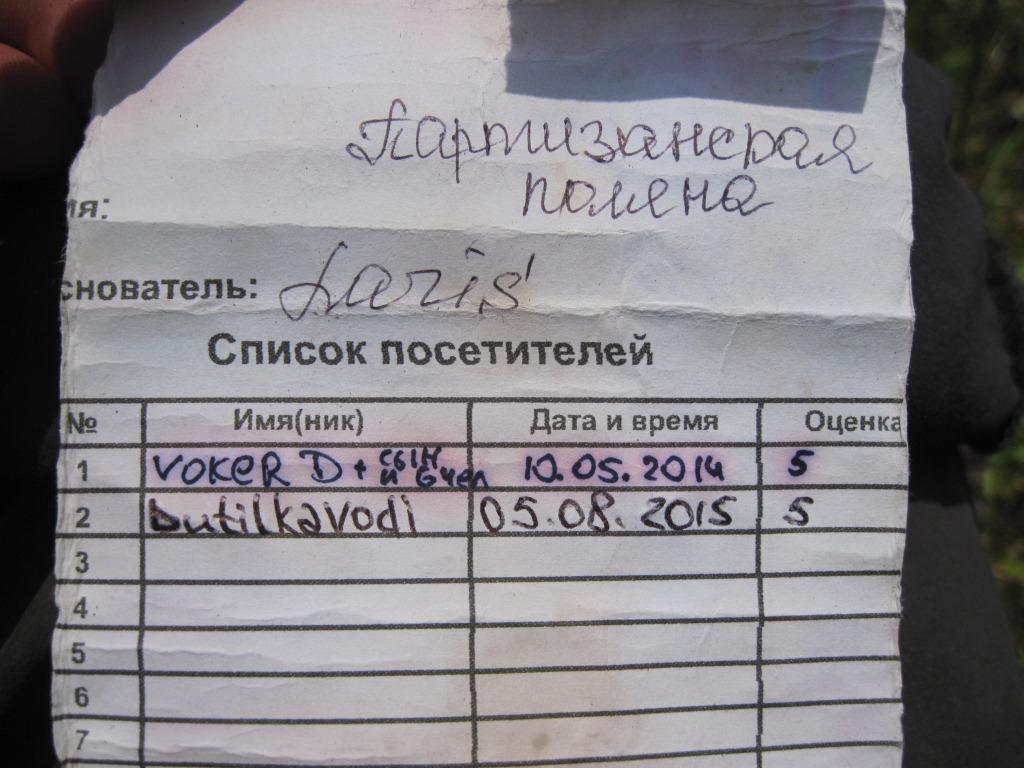 Партизанская
поляна
ия:
снователь: Laris'
Список посетителей
№ Имя(ник) Дата и время Оценка
1 VOKER D + сын и 6 чел 10.05.2014 5
2 butilkavodi 05.08.2015 5
3
4
5
6
7